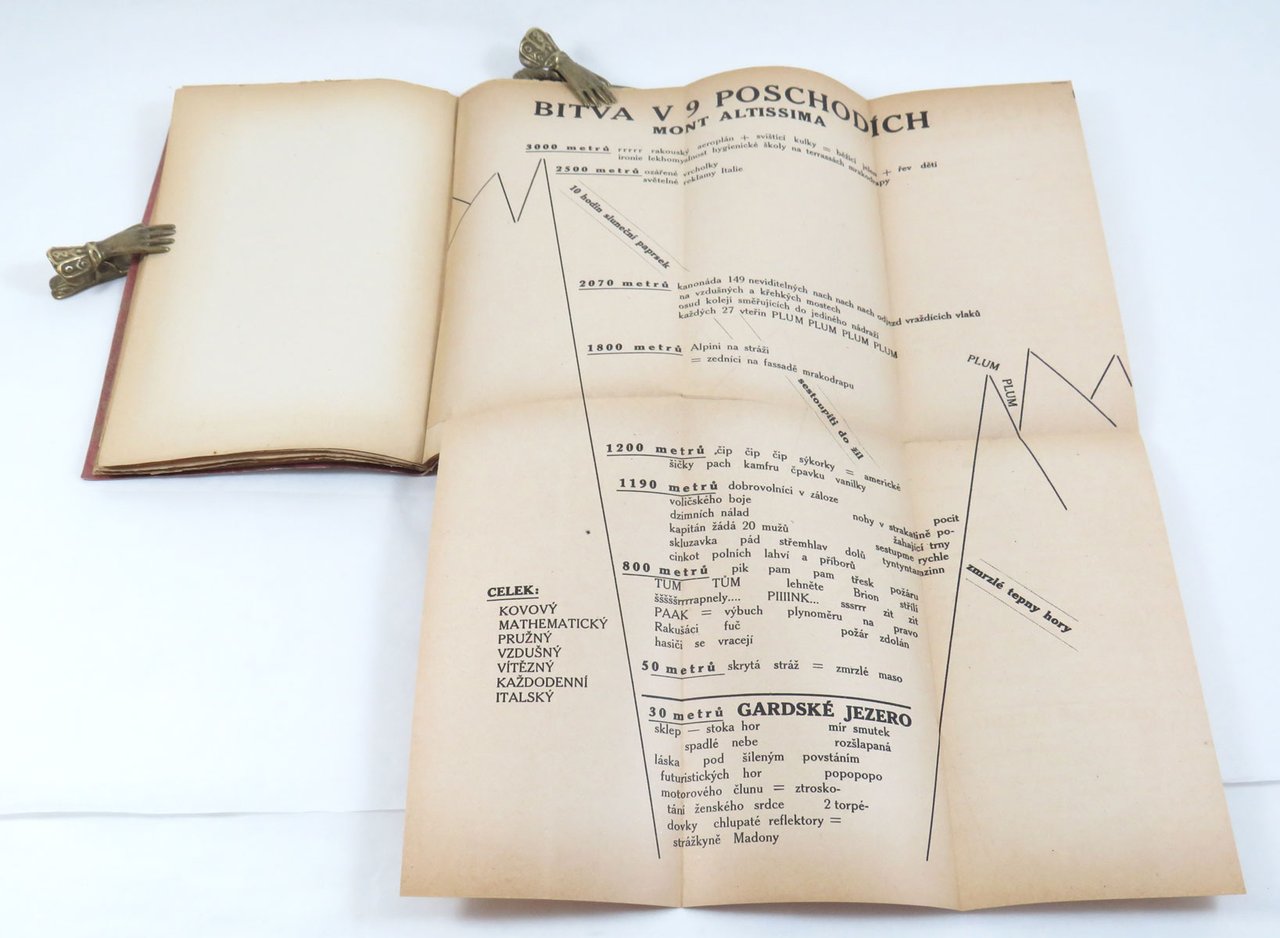 BITVA V 9 POSCHODÍCH
MONT ALTISSIMA
3000 metrů rrrrr rakouský aeroplán + svištící kulky = běžící jelen + řev dětí
ironie lekhomyslnost hygienické školy na terrassách mrakodrapy
2500 metrů ozářené vrcholky
světelné reklamy Italie
10 hodin sluneční paprsek
2070 metrů kanonáda 149 neviditelných nach nach nach odjezd vraždících vlaků
na vzdušných a křehkých mostech
osud kolejí směřujících do jediného nádraží
každých 27 vteřin PLUM PLUM PLUM PLUM
1800 metrů Alpini na stráži
= zedníci na fassadě mrakodrapu
PLUM
PLUM
sestoupiti do žil
1200 metrů čip čip čip sýkorky = americké
šičky pach kamfru čpavku vanilky
1190 metrů dobrovolníci v záloze
voličského boje
dzimních nálad nohy v strakatině pocit
kapitán žádá 20 mužů požahající trny
skluzavka pád střemhlav dolů sestupme rychle
cinkot polních lahví a příborů tyntyntamzinn
800 metrů pik pam pam třesk požáru
TUM TŮM lehněte Brion střílí
šššššrrrrapnely.... PIIIINK... sssrrr zit zit
PAAK = výbuch plynoměru na pravo
Rakušáci fuč požár zdolán
hasiči se vracejí
zmrzlé tepny hory
CELEK:
KOVOVÝ
MATHEMATICKÝ
PRUŽNÝ
VZDUŠNÝ
VÍTĚZNÝ
KAŽDODENNÍ
ITALSKÝ
50 metrů skrytá stráž = zmrzlé maso
30 metrů GARDSKÉ JEZERO
sklep — stoka hor mír smutek
spadlé nebe rozšlapaná
láska pod šíleným povstáním
futuristických hor popopopo
motorového člunu = ztrosko-
tání ženského srdce 2 torpé-
dovky chlupaté reflektory =
strážkyně Madony